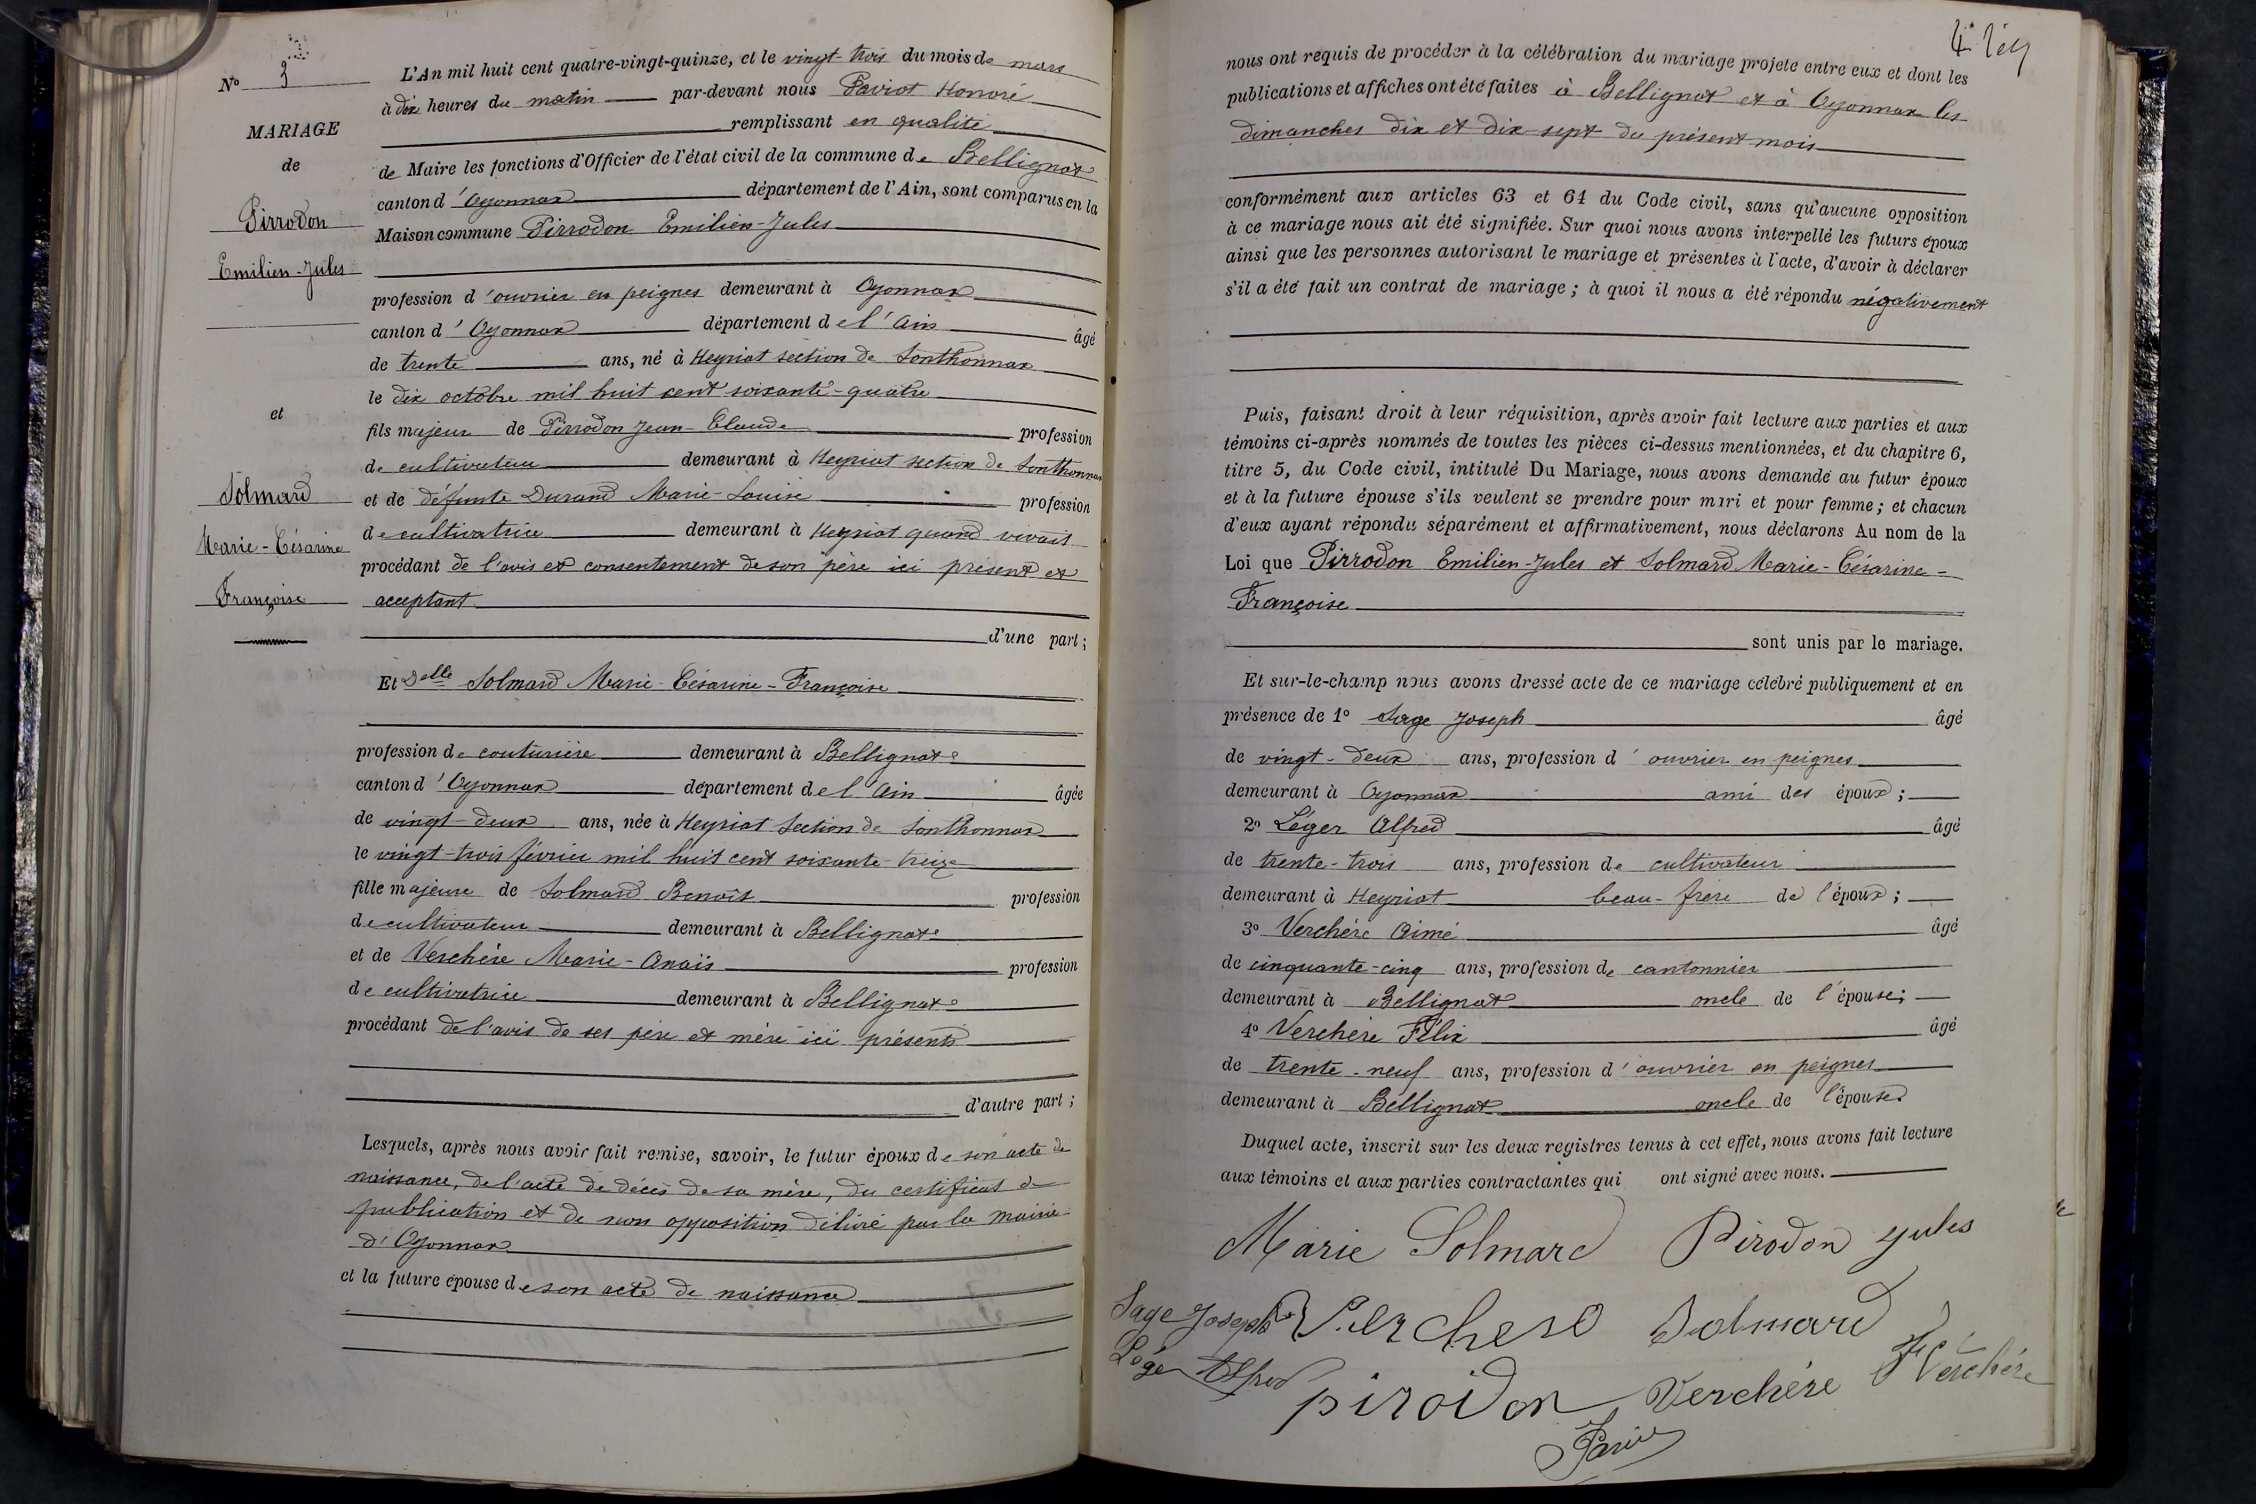 N° 3
MARIAGE
de
Pirrodon
Emilien-Jules
et
Solmard
Marie-Césarine
Françoise
L'An mil huit cent quatre-vingt-quinze, et le vingt-trois du mois de mars
à dix heures du matin par-devant nous Paviot Honoré
remplissant en qualité
de Maire les fonctions d'Officier de l'état civil de la commune de Bellignat
canton d'Oyonnax département de l'Ain, sont comparus en la
Maison commune Pirrodon Emilien-Jules
profession d'ouvrier en peignes demeurant à Oyonnax
canton d'Oyonnax département de l'Ain âgé
de trente ans, né à Heyriat section de Sonthonnax
le dix octobre mil huit cent soixante-quatre
fils majeur de Pirrodon Jean-Claude profession
de cultivateur demeurant à Heyriat section de Sonthonnax
et de défunte Durand Marie-Louise profession
de cultivatrice demeurant à Heyriat quand vivait
procédant de l'avis et consentement de son père ici présent et
acceptant
d'une part;
Et Delle Solmard Marie-Césarine-Françoise
profession de couturière demeurant à Bellignat
canton d'Oyonnax département de l'Ain âgée
de vingt-deux ans, née à Heyriat section de Sonthonnax
le vingt-trois février mil huit cent soixante-treize
fille majeure de Solmard Benoît profession
de cultivateur demeurant à Bellignat
et de Verchère Marie-Anaïs profession
de cultivatrice demeurant à Bellignat
procédant de l'avis de ses père et mère ici présents
d'autre part;
Lesquels, après nous avoir fait remise, savoir, le futur époux de son acte de
naissance, de l'acte de décès de sa mère, du certificat de
publication et de non opposition délivré par la mairie
d'Oyonnax
et la future épouse de son acte de naissance
nous ont requis de procéder à la célébration du mariage projeté entre eux et dont les
publications et affiches ont été faites à Bellignat et à Oyonnax les
dimanches dix et dix-sept du présent mois
conformément aux articles 63 et 64 du Code civil, sans qu'aucune opposition
à ce mariage nous ait été signifiée. Sur quoi nous avons interpellé les futurs époux
ainsi que les personnes autorisant le mariage et présentes à l'acte, d'avoir à déclarer
s'il a été fait un contrat de mariage; à quoi il nous a été répondu négativement
Puis, faisant droit à leur réquisition, après avoir fait lecture aux parties et aux
témoins ci-après nommés de toutes les pièces ci-dessus mentionnées, et du chapitre 6,
titre 5, du Code civil, intitulé Du Mariage, nous avons demandé au futur époux
et à la future épouse s'ils veulent se prendre pour mari et pour femme; et chacun
d'eux ayant répondu séparément et affirmativement, nous déclarons Au nom de la
Loi que Pirrodon Emilien-Jules et Solmard Marie-Césarine-
Françoise
sont unis par le mariage.
Et sur-le-champ nous avons dressé acte de ce mariage célébré publiquement et en
présence de 1° Sage Joseph âgé
de vingt-deux ans, profession d'ouvrier en peignes
demeurant à Oyonnax ami des époux;
2° Léger Alfred âgé
de trente-trois ans, profession de cultivateur
demeurant à Heyriat beau-frère de l'époux;
3° Verchère Aimé âgé
de cinquante-cinq ans, profession de cantonnier
demeurant à Bellignat oncle de l'épouse;
4° Verchère Félix âgé
de trente-neuf ans, profession d'ouvrier en peignes
demeurant à Bellignat oncle de l'épouse.
Duquel acte, inscrit sur les deux registres tenus à cet effet, nous avons fait lecture
aux témoins et aux parties contractantes qui ont signé avec nous.
Marie Solmard Pirodon Jules
Sage Joseph Verchere Solmard
Léger Alfred piroidon Verchère F Verchère